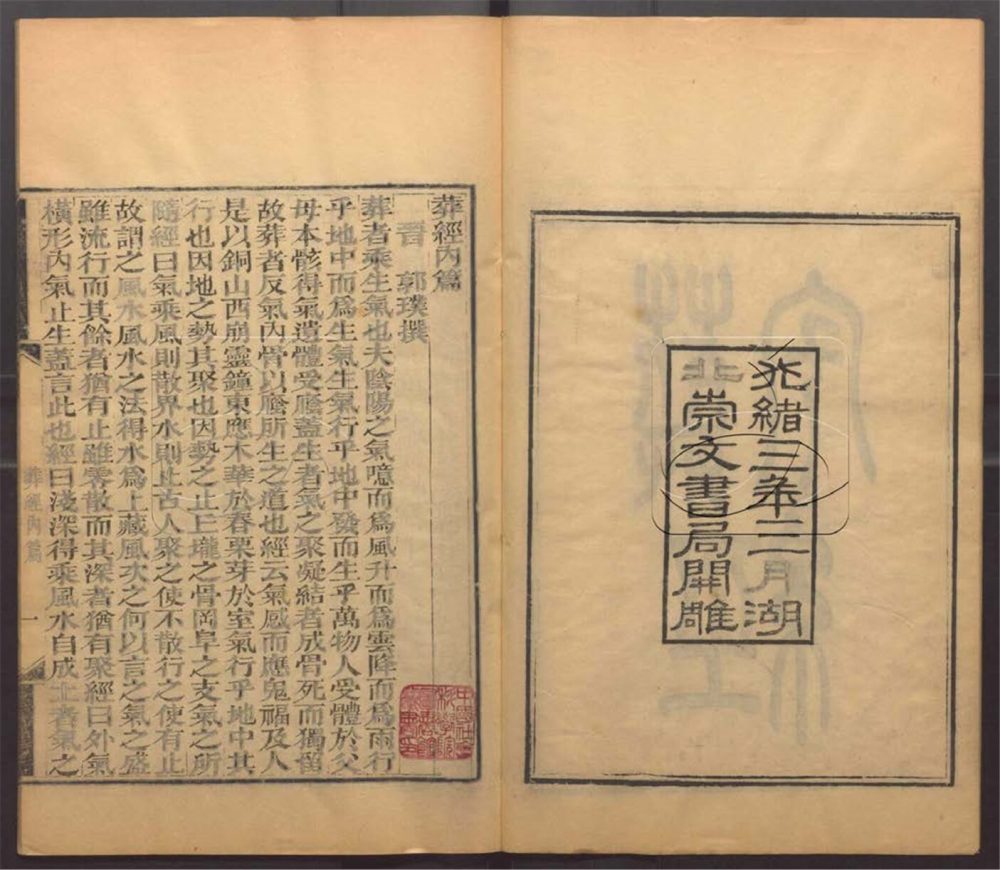 光緒三年三月湖
北崇文書局開雕
葬經內篇
晉 郭璞撰
葬者乘生氣也夫陰陽之氣噫而爲風升而爲雲降而爲雨行
乎地中而爲生氣生氣行乎地中發而生乎萬物人受體於父
母本骸得氣遺體受廕蓋生者氣之聚凝結者成骨死而獨留
故葬者反氣內骨以廕所生之道也經云氣感而應鬼福及人
是以銅山西崩靈鐘東應木華於春栗芽於室氣行乎地中其
行也因地之勢其聚也因勢之止丘瓏之骨岡阜之支氣之所
隨經曰氣乘風則散界水則止古人聚之使不散行之使有止
故謂之風水風水之法得水爲上藏風次之何以言之氣之盛
雖流行而其餘者猶有止雖零散而其深者猶有聚經曰外氣
橫形內氣止生蓋言此也經曰淺深得乘風水自成土者氣之
葬經內篇 一